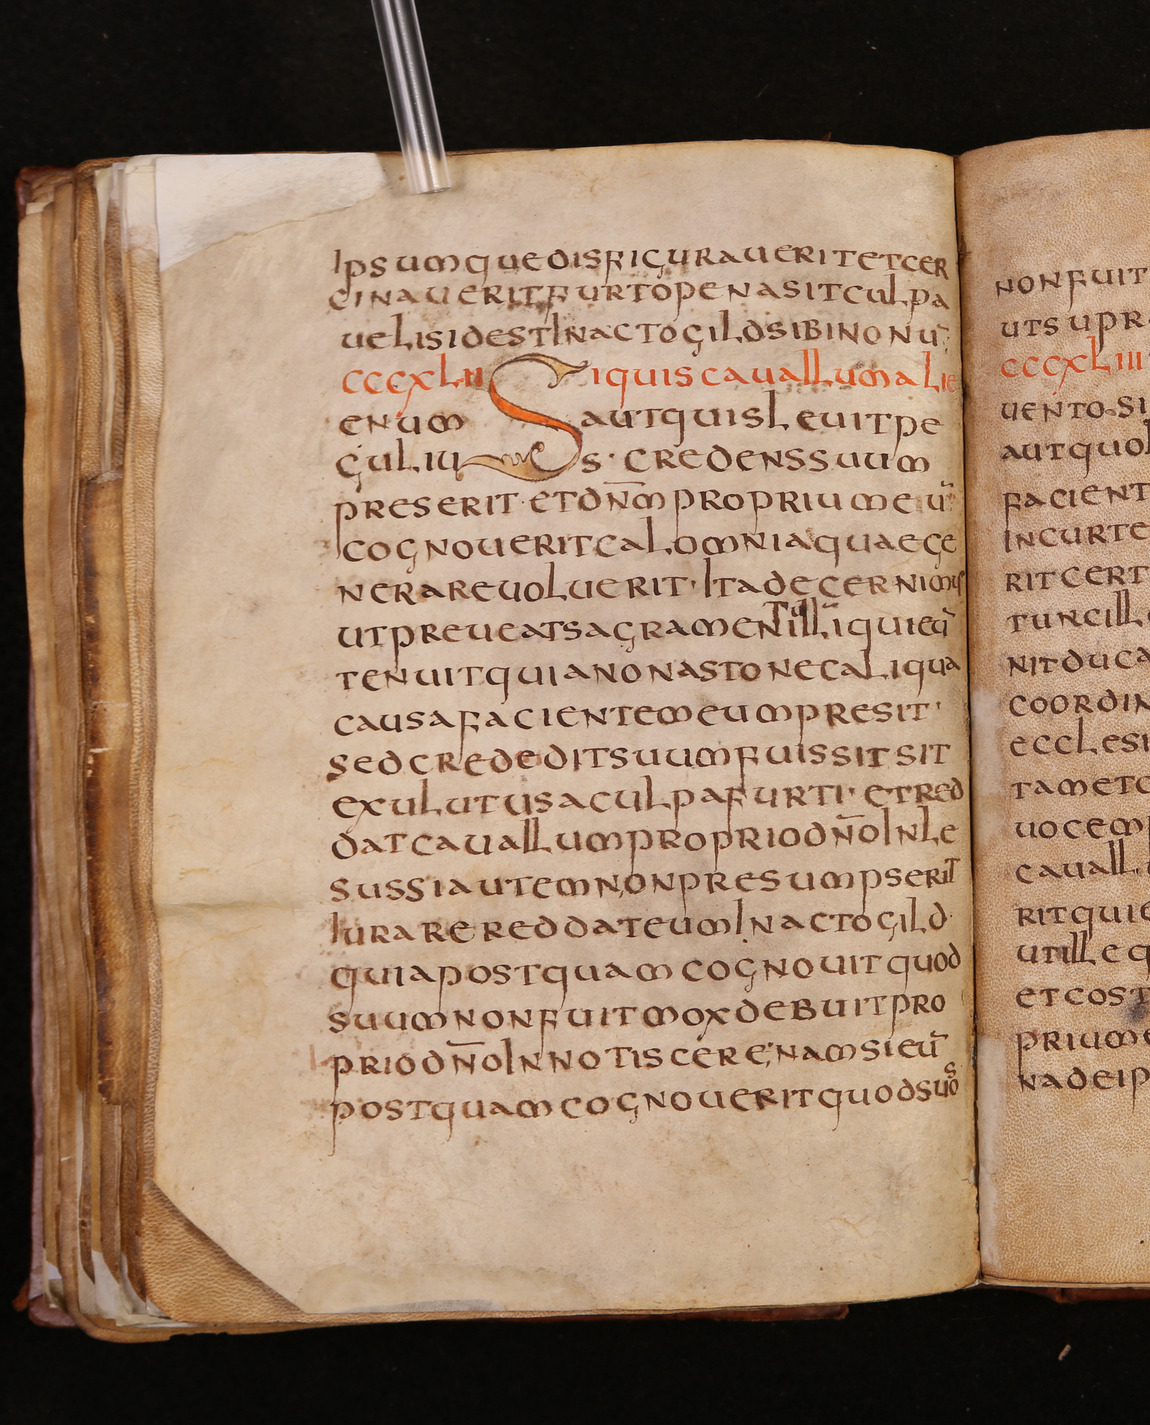 ipsumque disfiguraverit et cer
cinaverit furto penas it culpa
uel is id est in actogild sibi nonu;
cccxlii Si quis cauallum alie
enum aut quisleuit pe
culius · credens suum
preserit · et dn̄m proprium eiū
cognouerit cal omnia quae ge
nerare uoluerit · Ita decernimus
ut preueat sagramentum illi qui eū
tenuit quia non asto nec aliqua
causa faciente meum presit ·
sed credidit suum fuissit sit
exulutus a culpa furti · et red
dat cauallum proprio dn̄o In le
sus si autem non presumpserit
Iurare reddat eum In actogild ·
quia postquam cognouit quod
suum non fuit mox debuit pro
prio dn̄o In notiscere; nam si eū
postquam cognouerit quod suūs
non fuit
ut supr
cccxliii
uento · si
aut quo
facient
Incurte
rit cert
tunc ill
nit duca
coordin
eccles
tam et c
uocem
cauall
rit qui e
ut ille q
et cost
prium e
nade ip